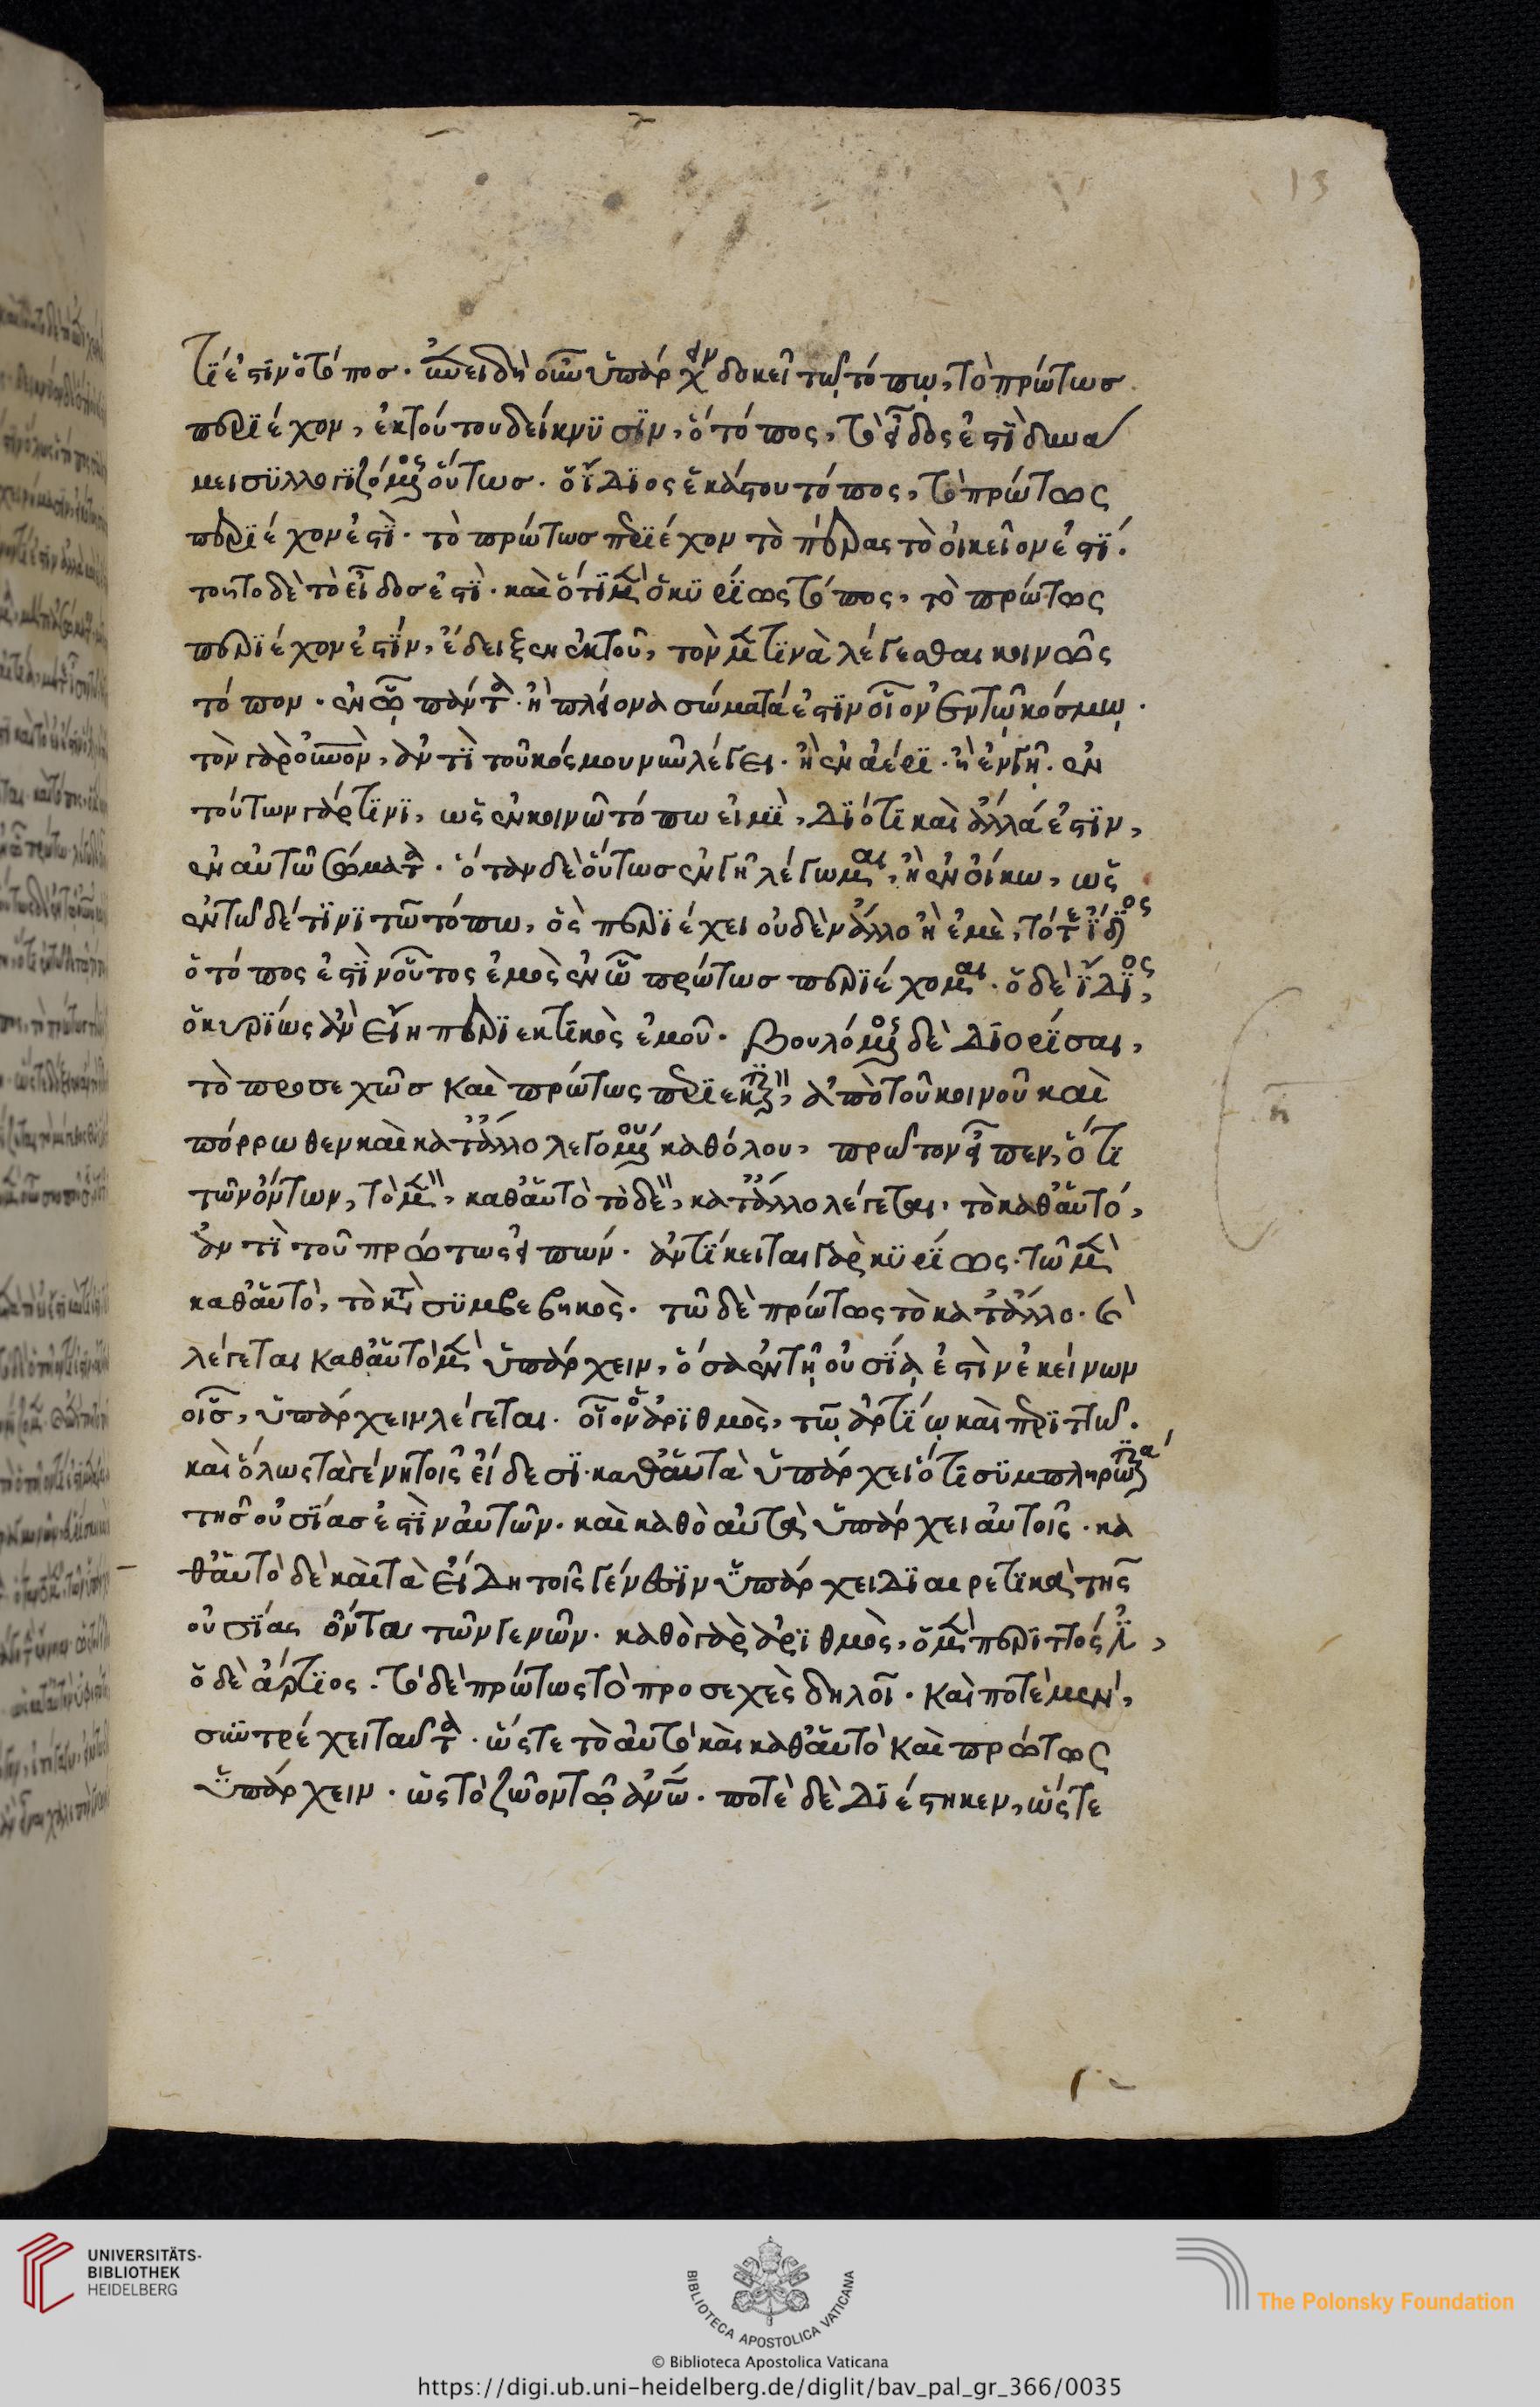 13
τί ἐστιν ὁ τόπος. ἐπειδὴ οὖν ὑπάρχειν δοκεῖ τῷ τόπῳ, τὸ πρώτως
περιέχον, ἐκ τούτου δείκνυσιν, ὁ τόπος, τὸ εἶδος ἐστὶ δυνά
μει συλλογιζόμενος οὕτως. ὁ ἴδιος ἑκάστου τόπος, τὸ πρώτως
περιέχον ἐστὶ. τὸ πρώτως περιέχον τὸ πέρας τὸ οἰκεῖον ἐστί.
τοῦτο δὲ τὸ εἶδος ἐστὶ. καὶ ὅτι μὲν ὁ κυρίως τόπος, τὸ πρώτως
περιέχον ἐστίν, ἔδειξεν ἐκ τοῦ, τὸν μὲν τινὰ λέγεσθαι κοινῶς
τόπον. ἐν ᾧ πάντα ἢ πλείονα σώματά ἐστιν οἷον ἐν τῷ κόσμῳ.
τὸν γὰρ οὐρανὸν, ἀντὶ τοῦ κόσμου νῦν λέγει. ἢ ἐν ἀέρι. ἢ ἐν γῇ. ἐν
τούτων γάρ τινι, ὡς ἐν κοινῷ τόπω εἰμὶ, διότι καὶ ἄλλά ἐστιν,
ἐν αὐτῷ σώματα. ὅταν δὲ οὕτως ἐν γῇ λέγωμαι, ἢ ἐν οἴκω, ὡς
ἐν τῷδέ τινι τῶ τόπω, ὃς περιέχει οὐδὲν ἄλλο ἢ ἐμὲ, τότε ἴδιος
ὁ τόπος ἐστὶν οὗτος ἐμὸς ἐν ᾧ πρώτως περιέχομαι. ὁ δὲ ἴδιος,
ὁ κυρίως ἂν εἴη περιεκτικὸς ἐμοῦ. βουλόμενος δὲ διορίσαι,
τὸ προσεχῶς καὶ πρώτως περιεκτικὸν, ἀπὸ τοῦ κοινοῦ καὶ
πόρρωθεν καὶ κατ' ἄλλο λεγομένου καθόλου, πρῶτον εἶπεν, ὅτι
τῶν ὄντων, τὸ μὲν, καθ' αὑτὸ τὸ δὲ, κατ' ἄλλο λέγεται. τὸ καθ' αὑτό,
ἀντὶ τοῦ πρώτως εἰπών. ἀντίκειται γὰρ κυρίως. τῷ μὲν
καθ' αὑτὸ, τὸ κατὰ συμβεβηκὸς. τῷ δὲ πρώτως τὸ κατ' ἄλλο. καὶ
λέγεται καθ' αὑτὸ μὲν ὑπάρχειν, ὅσα ἐν τῇ οὐσίᾳ ἐστὶν ἐκείνων
οἷς, ὑπάρχειν λέγεται. οἷον ἀριθμὸς, τῷ ἀρτίῳ καὶ περιττῷ.
καὶ ὅλως τὰ γένη τοῖς εἴδεσι. καθ' αὑτὰ ὑπάρχει ὅτι συμπληρωτικὰ
τῆς οὐσίας ἐστὶν αὐτῶν. καὶ καθὸ αὐτὰ ὑπάρχει αὐτοῖς. κα
θ' αὑτὸ δὲ καὶ τὰ εἴδη τοῖς γένεσιν ὑπάρχει διαιρετικὰ τῆς
οὐσίας ὄντα τῶν γενῶν. καθὸ γὰρ ἀριθμὸς, ὁ μὲν περιττός ἐστιν,
ὁ δὲ ἄρτιος. τὸ δὲ πρώτως τὸ προσεχὲς δηλοῖ. καὶ ποτὲ μὲν,
συντρέχει ταῦτα. ὥστε τὸ αὐτὸ καὶ καθ' αὑτὸ καὶ πρώτως
ὑπάρχειν. ὡς τὸ ζῷον τῷ ἀνθρώπῳ. ποτὲ δὲ διέστηκεν, ὥστε
UNIVERSITÄTS-
BIBLIOTHEK
HEIDELBERG
BIBLIOTECA APOSTOLICA VATICANA
The Polonsky Foundation
© Biblioteca Apostolica Vaticana
https://digi.ub.uni-heidelberg.de/diglit/bav_pal_gr_366/0035